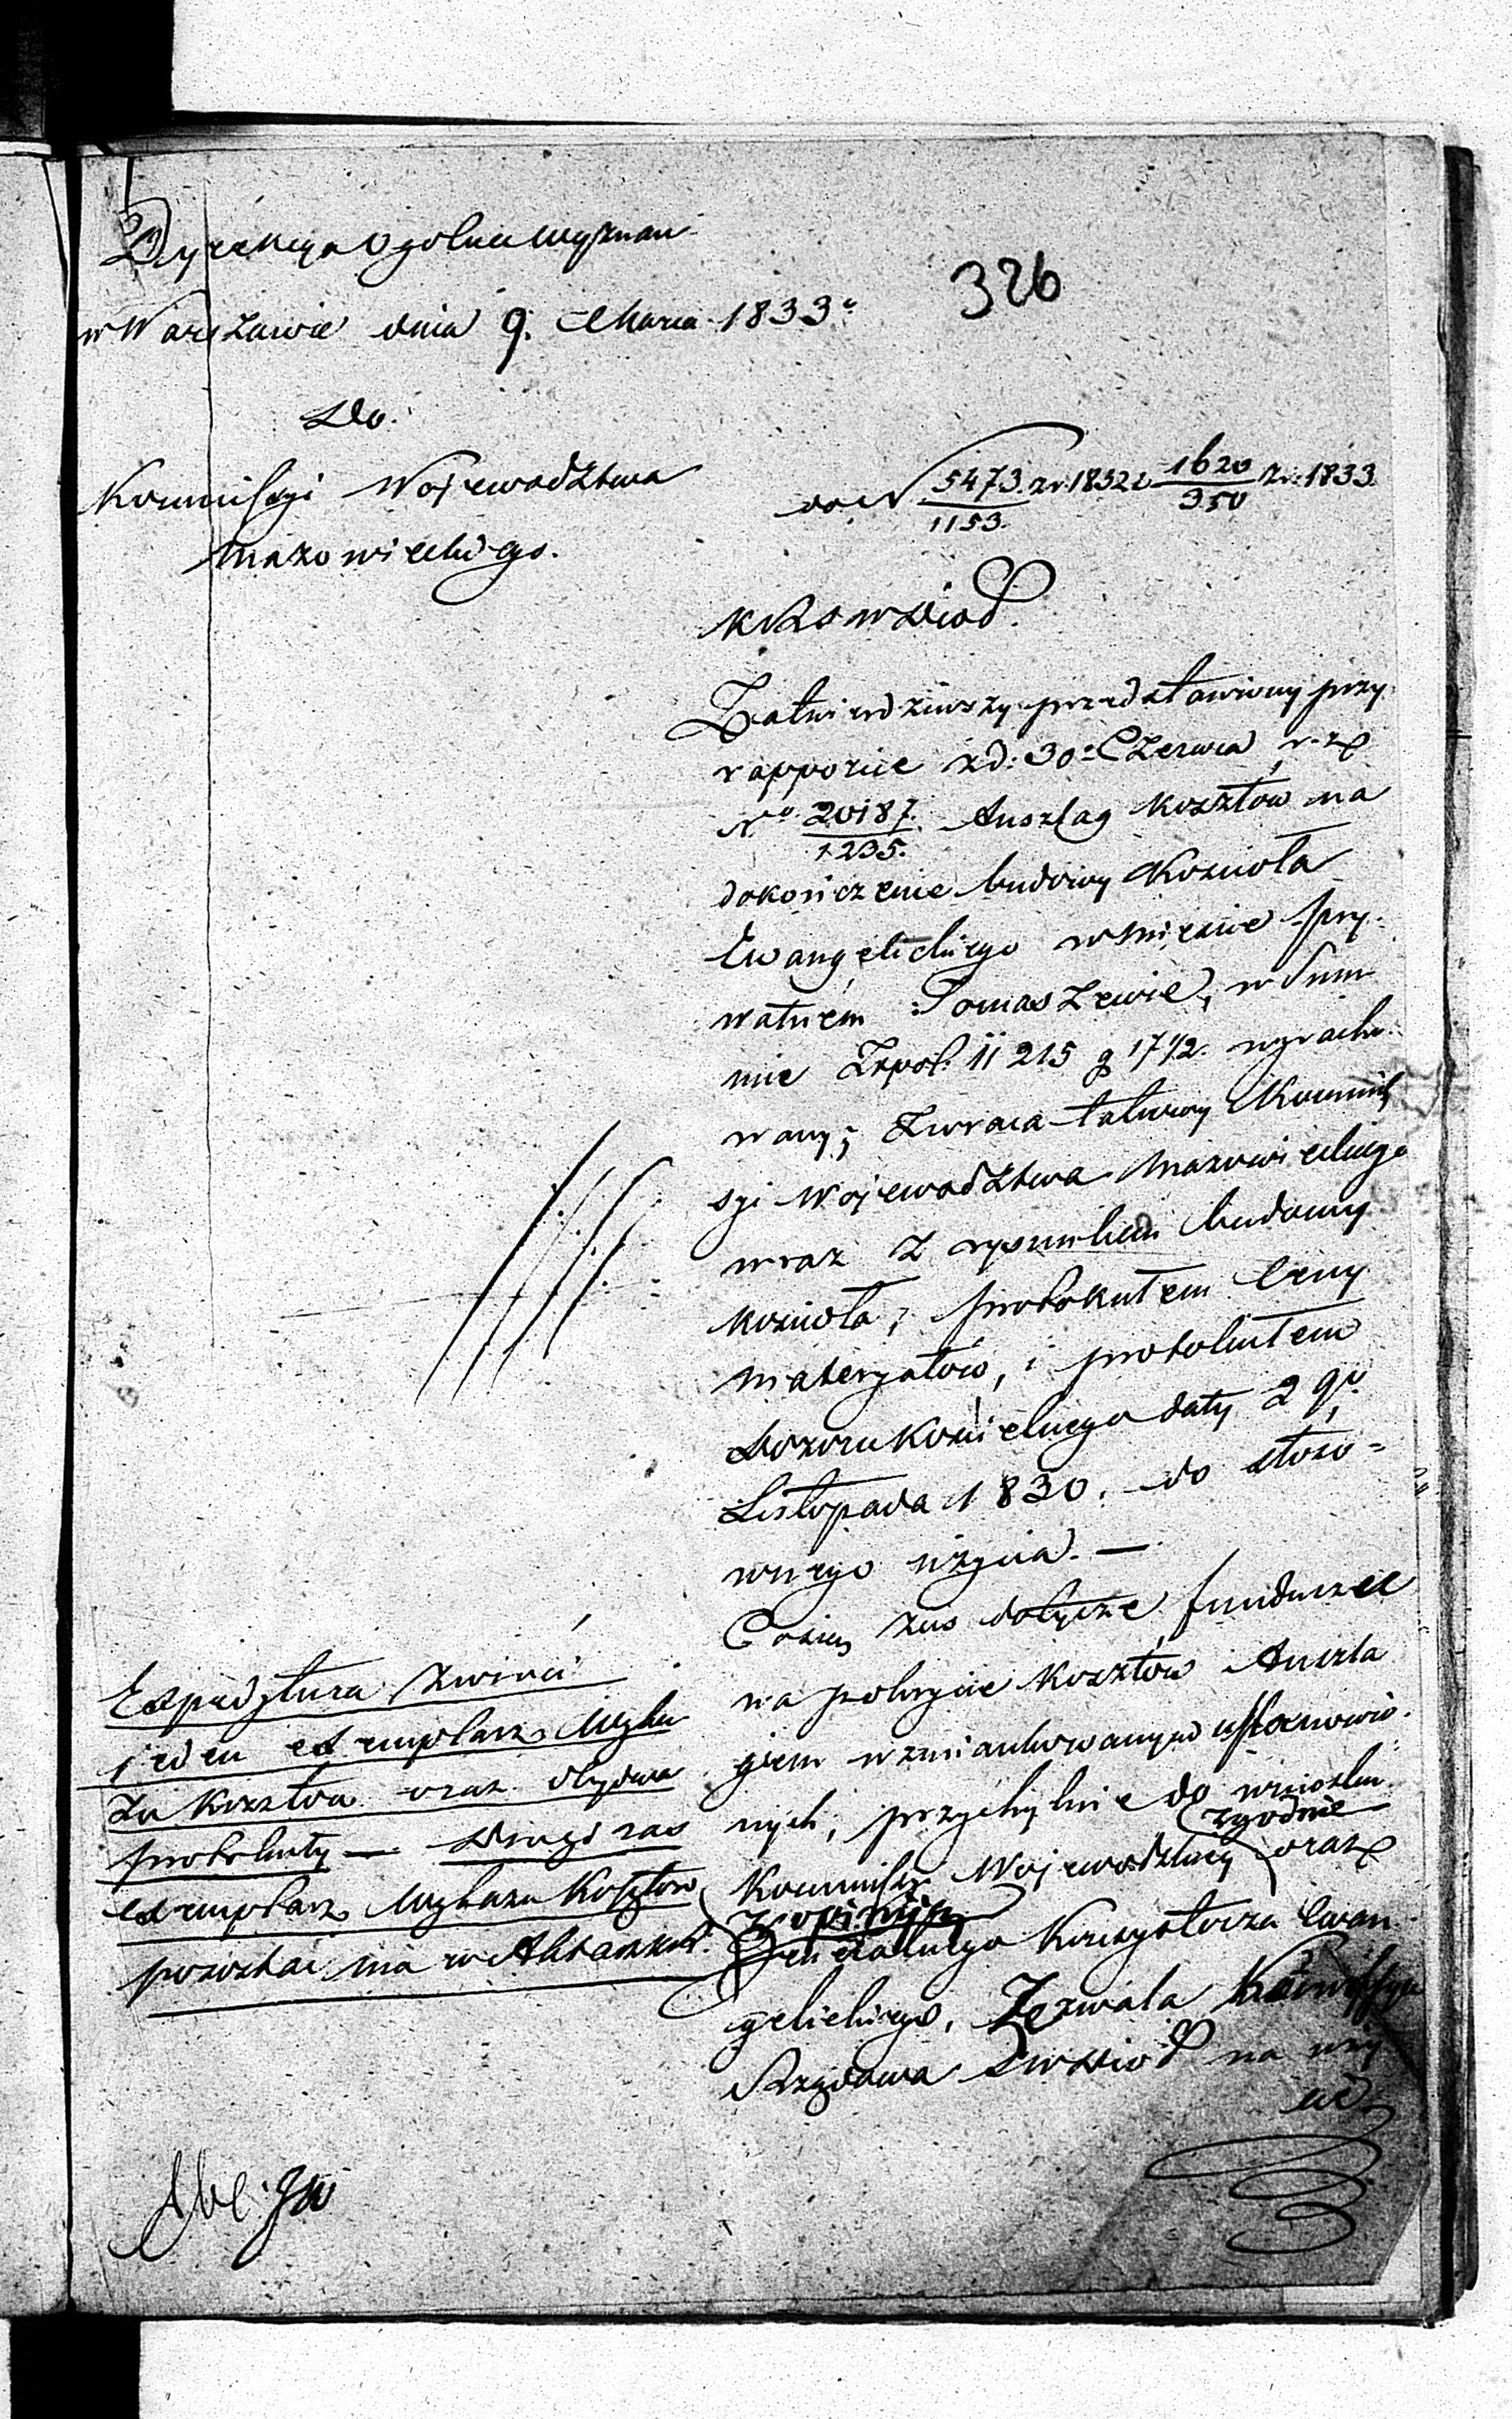 Dyrekcya Ogolna Wyznan
w Warszawie dnia 9. Marca 1833.
326
Do
Kommissyi Województwa
Mazowieckiego.
do N 5473/1153 z r. 1832 i 1620/350 z r. 1833
KRSWD i OP.
Zatwierdziwszy przedstawiony przy
rapporcie z d: 30 Czerwca r. z.
No 20187/1235. Anszlag kosztów na
dokończenie budowy Kościoła
Ewangelickiego w Mieście pry-
watnem Tomaszewie, w Sum-
mie Zzpol: 11215 g 17 1/2. wyracho-
wany; zwraca takowy Kommis-
syi Województwa Mazowieckiego
wraz z rysunkiem budowy
kościoła, protokułem ceny
materyałów, i protokułem
Dozoru Kościelnego daty 29
Listopada 1830. do stoso=
wnego użycia. —
Co się zaś dotycze funduszu
na pokrycie kosztów Anszla
giem wzmiankowanym ustanowio-
nych, przychylnie do wniosku
Kommissyi Wojewodzkiey zgodnie oraz
z opiniją
Generalnego Konsystorza Ewan-
gelickiego, Zezwala Kommissya
Rządowa SWD i OP na uży
cie
Expedytura zwróci
jeden exemplarz Wyka
zu kosztów oraz obydwa
protokuły — Drugi zas
exemplarz Wykazu Kosztów
pozostać ma w Aktach.